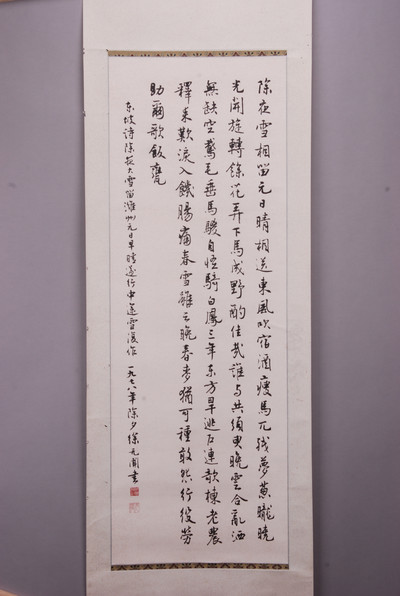 除夜雪相留元日晴相送東風吹宿酒瘦馬兀殘夢蔥曨曉
光開旋轉餘花弄下馬成野酌佳哉誰與共須臾晚雲合亂洒
無缺空鵞毛垂馬騣自怪騎白鳳三年东方旱逃戶連欹棟老農
釋耒歎淚入饑腸痛春雪雖云晚春麥猶可種敢怨行役勞
助爾歌飯甕
东坡詩除夜大雪留濰州元日早晴遂行中途雪復作 一九七八年除夕徐无聞書